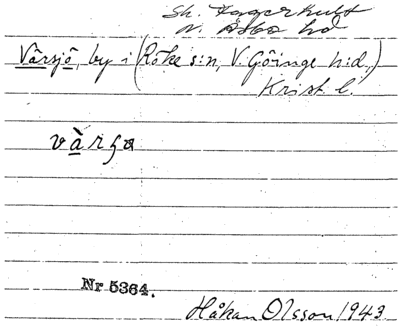 Sk. Fagerhult
N. Åsbo hd
Vårsjö, by i (Röke s:n, V. Göinge h:d.)
Krist. l.
Nr 5364.
Håkan Olsson 1943